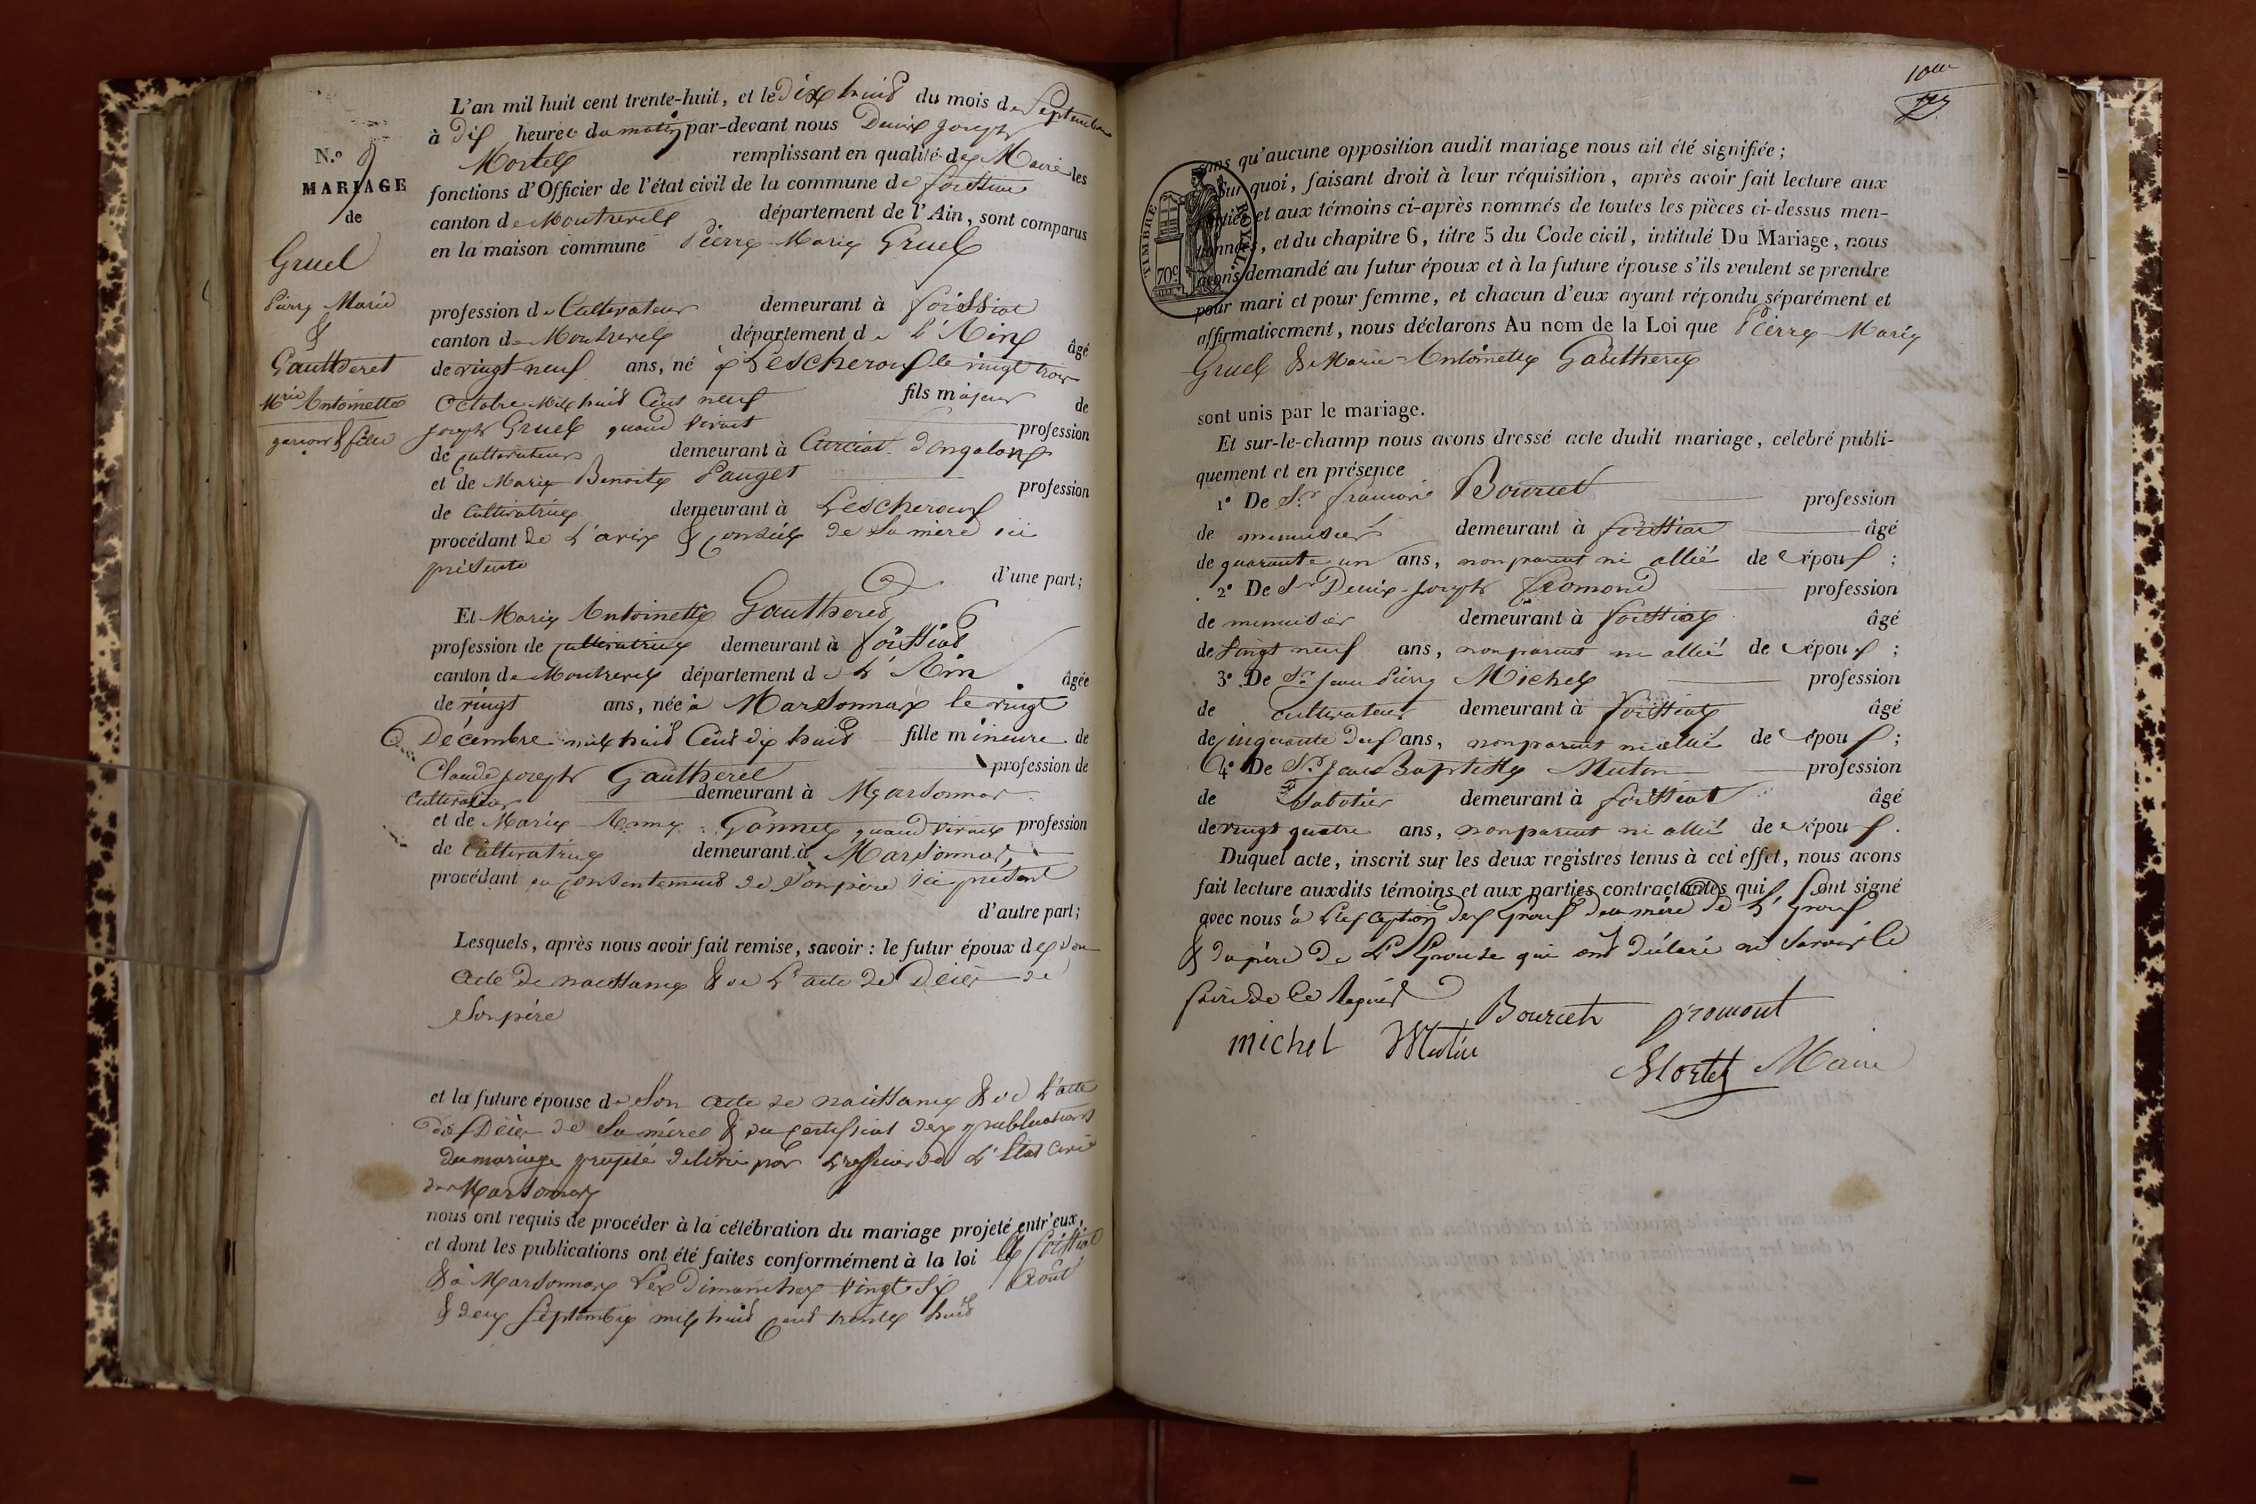 N.º 9
MARIAGE
de
Gruel
Pierre Marie
&
Gauttheret
Mrie Antoinette
garçon & fille
L'an mil huit cent trente-huit, et le dix huit du mois de Septembre
à dix heures du matin par-devant nous Denis Joseph
Mortel remplissant en qualité de Maire les
fonctions d'Officier de l'état civil de la commune de foissiat
canton de Montrevel département de l'Ain, sont comparus
en la maison commune Pierre Marie Gruel
profession de Cultivateur demeurant à foissiat
canton de Montrevel département de l'Ain âgé
de vingt neuf ans, né à Lescheroux le vingt trois
Octobre mil huit Cent neuf fils majeur de
Joseph Gruel quand vivait profession
de cultivateur demeurant à Curciat Dongalon
et de Marie Benoite Pauget profession
de cultivatrice demeurant à Lescheroux
procédant de l'avis & conseil de sa mère ici
présente
d'une part;
Et Marie Antoinette Gauthered
profession de cultivatrice demeurant à foissiat
canton de Montrevel département de l'Ain âgée
de vingt ans, née à Marsonnax le vingt
Décembre mil huit Cent dix huit fille mineure de
Claude joseph Gautheret profession de
Cultivateur demeurant à Marsonnas
et de Marie Anne Gonnet quand vivait profession
de cultivatrice demeurant à Marsonnas,
procédant du consentement de son père ici présent
d'autre part;
Lesquels, après nous avoir fait remise, savoir : le futur époux de son
acte de naissance & de l'acte de Décès de
son père
et la future épouse de son acte de naissance & de l'acte
de Décès de sa mère & du certificat des publications
du mariage projeté délivré par l'officier de l'état civil
de Marsonnas
nous ont requis de procéder à la célébration du mariage projeté entr'eux,
et dont les publications ont été faites conformément à la loi à foissiat
& à Marsonnas les Dimanches vingt six Août
& deux Septembre mil huit cent trente huit
10me
sans qu'aucune opposition audit mariage nous ait été signifiée;
Sur quoi, faisant droit à leur réquisition, après avoir fait lecture aux
parties et aux témoins ci-après nommés de toutes les pièces ci-dessus men-
tionnées, et du chapitre 6, titre 5 du Code civil, intitulé Du Mariage, nous
avons demandé au futur époux et à la future épouse s'ils veulent se prendre
pour mari et pour femme, et chacun d'eux ayant répondu séparément et
affirmativement, nous déclarons Au nom de la Loi que Pierre Marie
Gruel & Marie Antoinette Gautheret
TIMBRE ROYAL.
70c
sont unis par le mariage.
Et sur-le-champ nous avons dressé acte dudit mariage, célébré publi-
quement et en présence
1º De Sr. francois Bourcet profession
de menuisier demeurant à foissiat âgé
de quarante un ans, non parent ni allié de Sépoux;
2º De Sr Denis Joseph fromond profession
de menuisier demeurant à foissiat âgé
de Vingt neuf ans, non parent ni allié de Sépoux;
3º De Sr Jean Pierre Michel profession
de cultivateur demeurant à foissiat âgé
de cinquante deux ans, non parent ni allié de Sépoux;
4º De Sr Jean Baptiste Mutin profession
de Sabotier demeurant à foissiat âgé
de vingt quatre ans, non parent ni allié de Sépoux.
Duquel acte, inscrit sur les deux registres tenus à cet effet, nous avons
fait lecture auxdits témoins et aux parties contractantes qui sont signé
avec nous à l'exception des Époux de la mère de l'Époux
& du père de l'Épouse qui ont déclaré ne savoir le
faire de ce requis
Bourcet fromont
michel Mutin
Mortel Maire